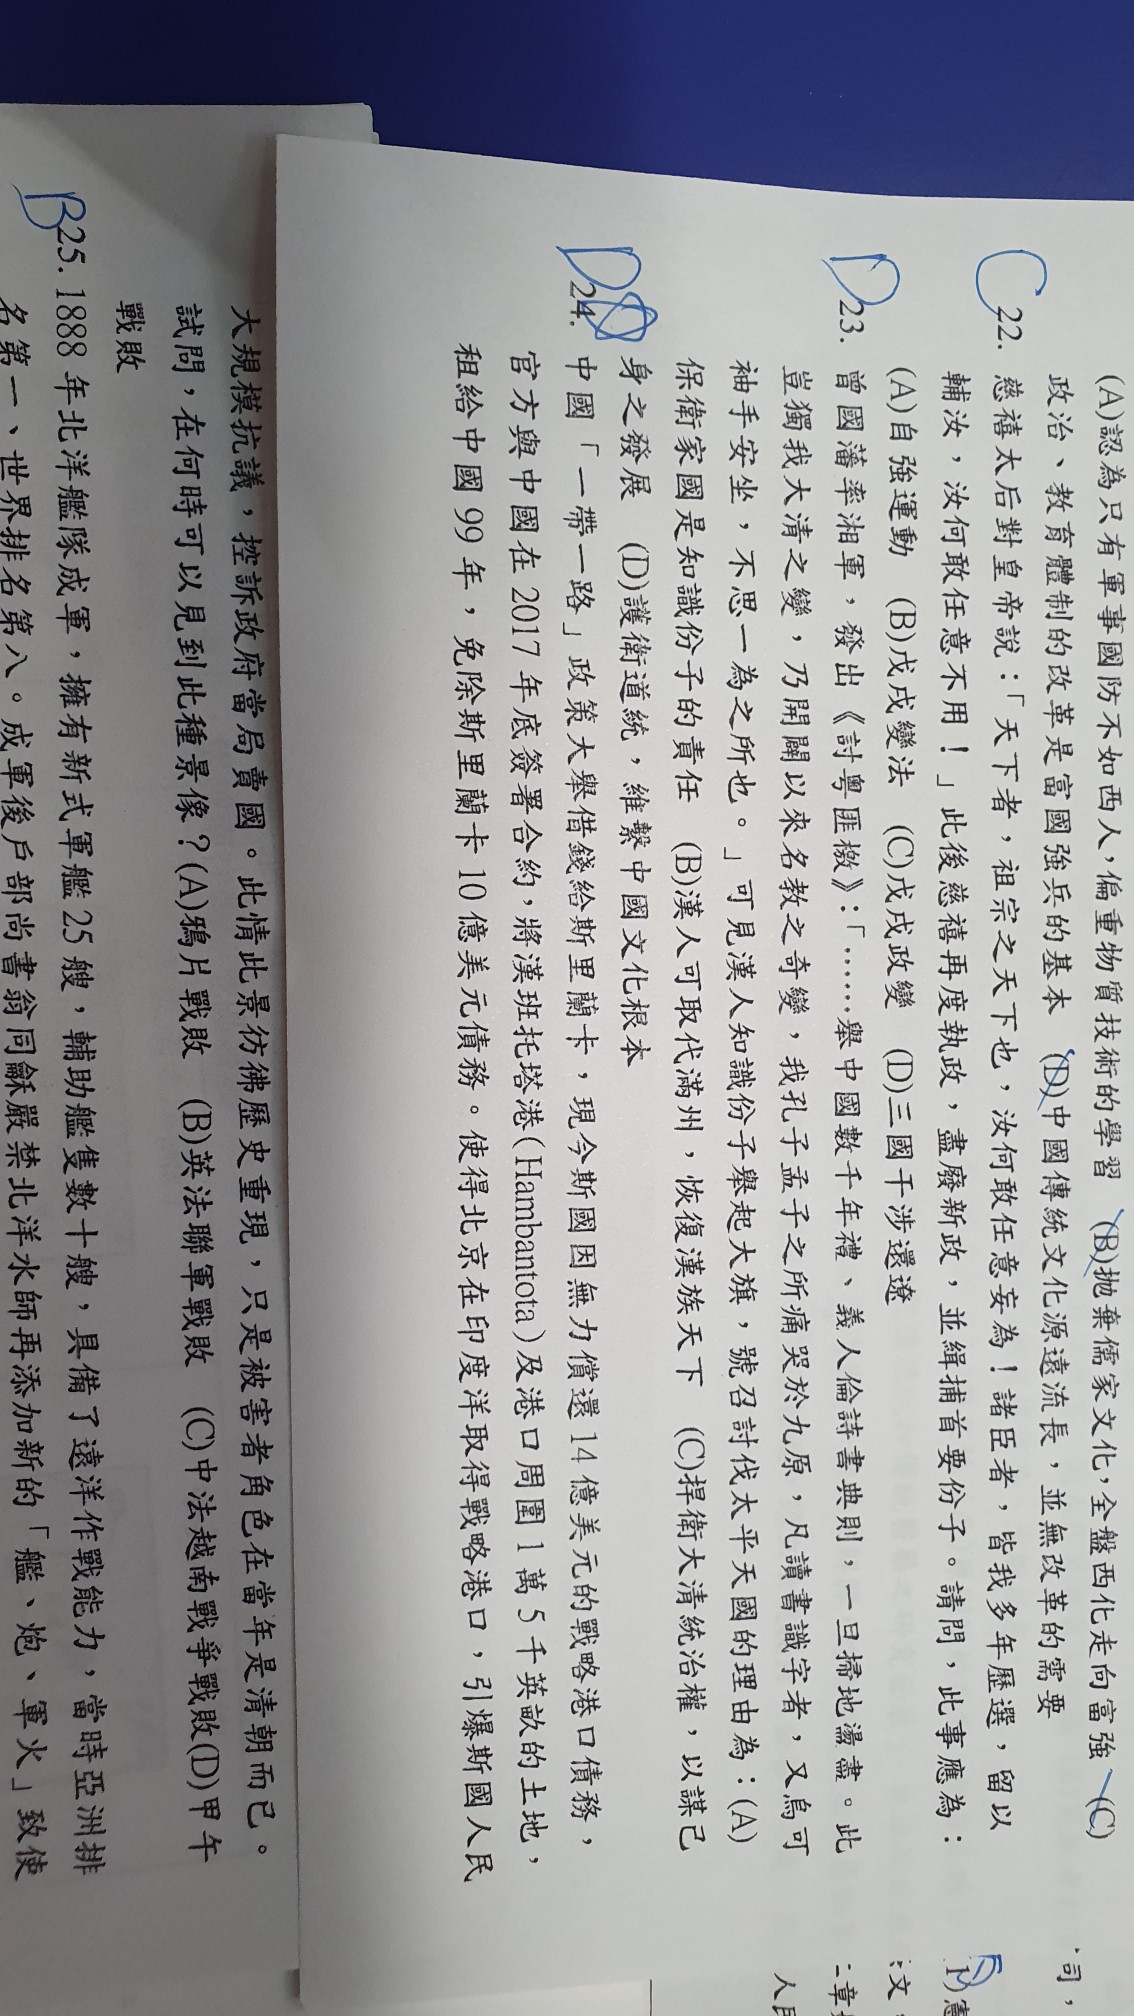 (A)認為只有軍事國防不如西人,偏重物質技術的學習　(B)拋棄儒家文化,全盤西化走向富強　(C)
政治、教育體制的改革是富國強兵的基本　(D)中國傳統文化源遠流長,並無改革的需要
C 22. 慈禧太后對皇帝說:「天下者,祖宗之天下也,汝何敢任意妄為!諸臣者,皆我多年歷選,留以
輔汝,汝何敢任意不用!」此後慈禧再度執政,盡廢新政,並緝捕首要份子。請問,此事應為:
(A)自強運動　(B)戊戌變法　(C)戊戌政變　(D)三國干涉還遼
D 23. 曾國藩率湘軍,發出《討粵匪檄》:「……舉中國數千年禮、義人倫詩書典則,一旦掃地盪盡。此
豈獨我大清之變,乃開闢以來名教之奇變,我孔子孟子之所痛哭於九原,凡讀書識字者,又烏可
袖手安坐,不思一為之所也。」可見漢人知識份子舉起大旗,號召討伐太平天國的理由為:(A)
保衛家國是知識份子的責任　(B)漢人可取代滿州,恢復漢族天下　(C)捍衛大清統治權,以謀己
身之發展　(D)護衛道統,維繫中國文化根本
D 24. 中國「一帶一路」政策大舉借錢給斯里蘭卡,現今斯國因無力償還14億美元的戰略港口債務,
官方與中國在2017年底簽署合約,將漢班托塔港(Hambantota)及港口周圍1萬5千英畝的土地,
租給中國99年,免除斯里蘭卡10億美元債務。使得北京在印度洋取得戰略港口,引爆斯國人民
大規模抗議,控訴政府當局賣國。此情此景彷彿歷史重現,只是被害者角色在當年是清朝而已。
試問,在何時可以見到此種景像?(A)鴉片戰敗　(B)英法聯軍戰敗　(C)中法越南戰爭戰敗(D)甲午
戰敗
B 25. 1888年北洋艦隊成軍,擁有新式軍艦25艘,輔助艦隻數十艘,具備了遠洋作戰能力,當時亞洲排
名第一、世界排名第八。成軍後戶部尚書翁同龢嚴禁北洋水師再添加新的「艦、炮、軍火」致使
司,
1)憲
人民